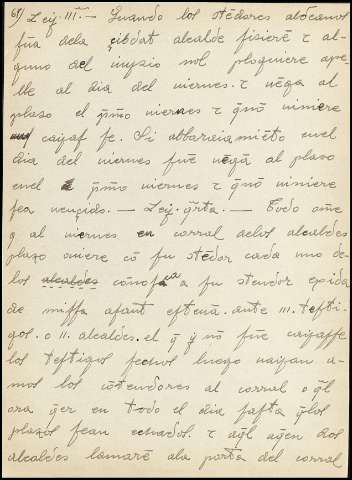 68/ Leij. III.ª — Quando los stēdores aldeanos
fūa dela çibdat alcalde fisierē τ al-
guno del iuysio nol ploguiere ape-
lle al dia del viernes. τ nēga al
plaso el p̄mo viernes τ q̄no viniere
cayasse. Si abbaraiamiēto enel
dia del viernes fuē nēgā al plaso
enel p̄mo viernes τ q̄no viniere
sea vençido. — Leij. q̄rta. — Todo ome
q̄ al viernes en corral delos alcaldēs
plazo oviere cō su stēdor cada uno de
los alcaldes cōnosca a su stendor exida
de missa aiant esterna. ante III. testi-
gos. o II. alcaldes. el q̄ ẏ nō fuē cayasse
los testigos fechos luego vaiyan a-
mos los cōtendores al corral o q̄l
ora q̄er en todo el dia fasta q̄los
plazos sean echados. τ aq̄l aq̄en dos
alcaldes lamarē ala porta del corral